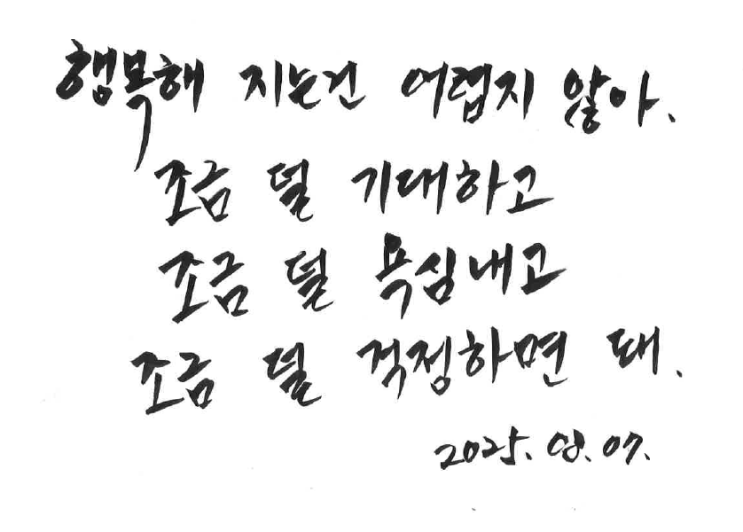 행복해 지는건 어렵지 않아.
조금 덜 기대하고
조금 덜 욕심내고
조금 덜 걱정하면 돼.
2025. 08. 07.